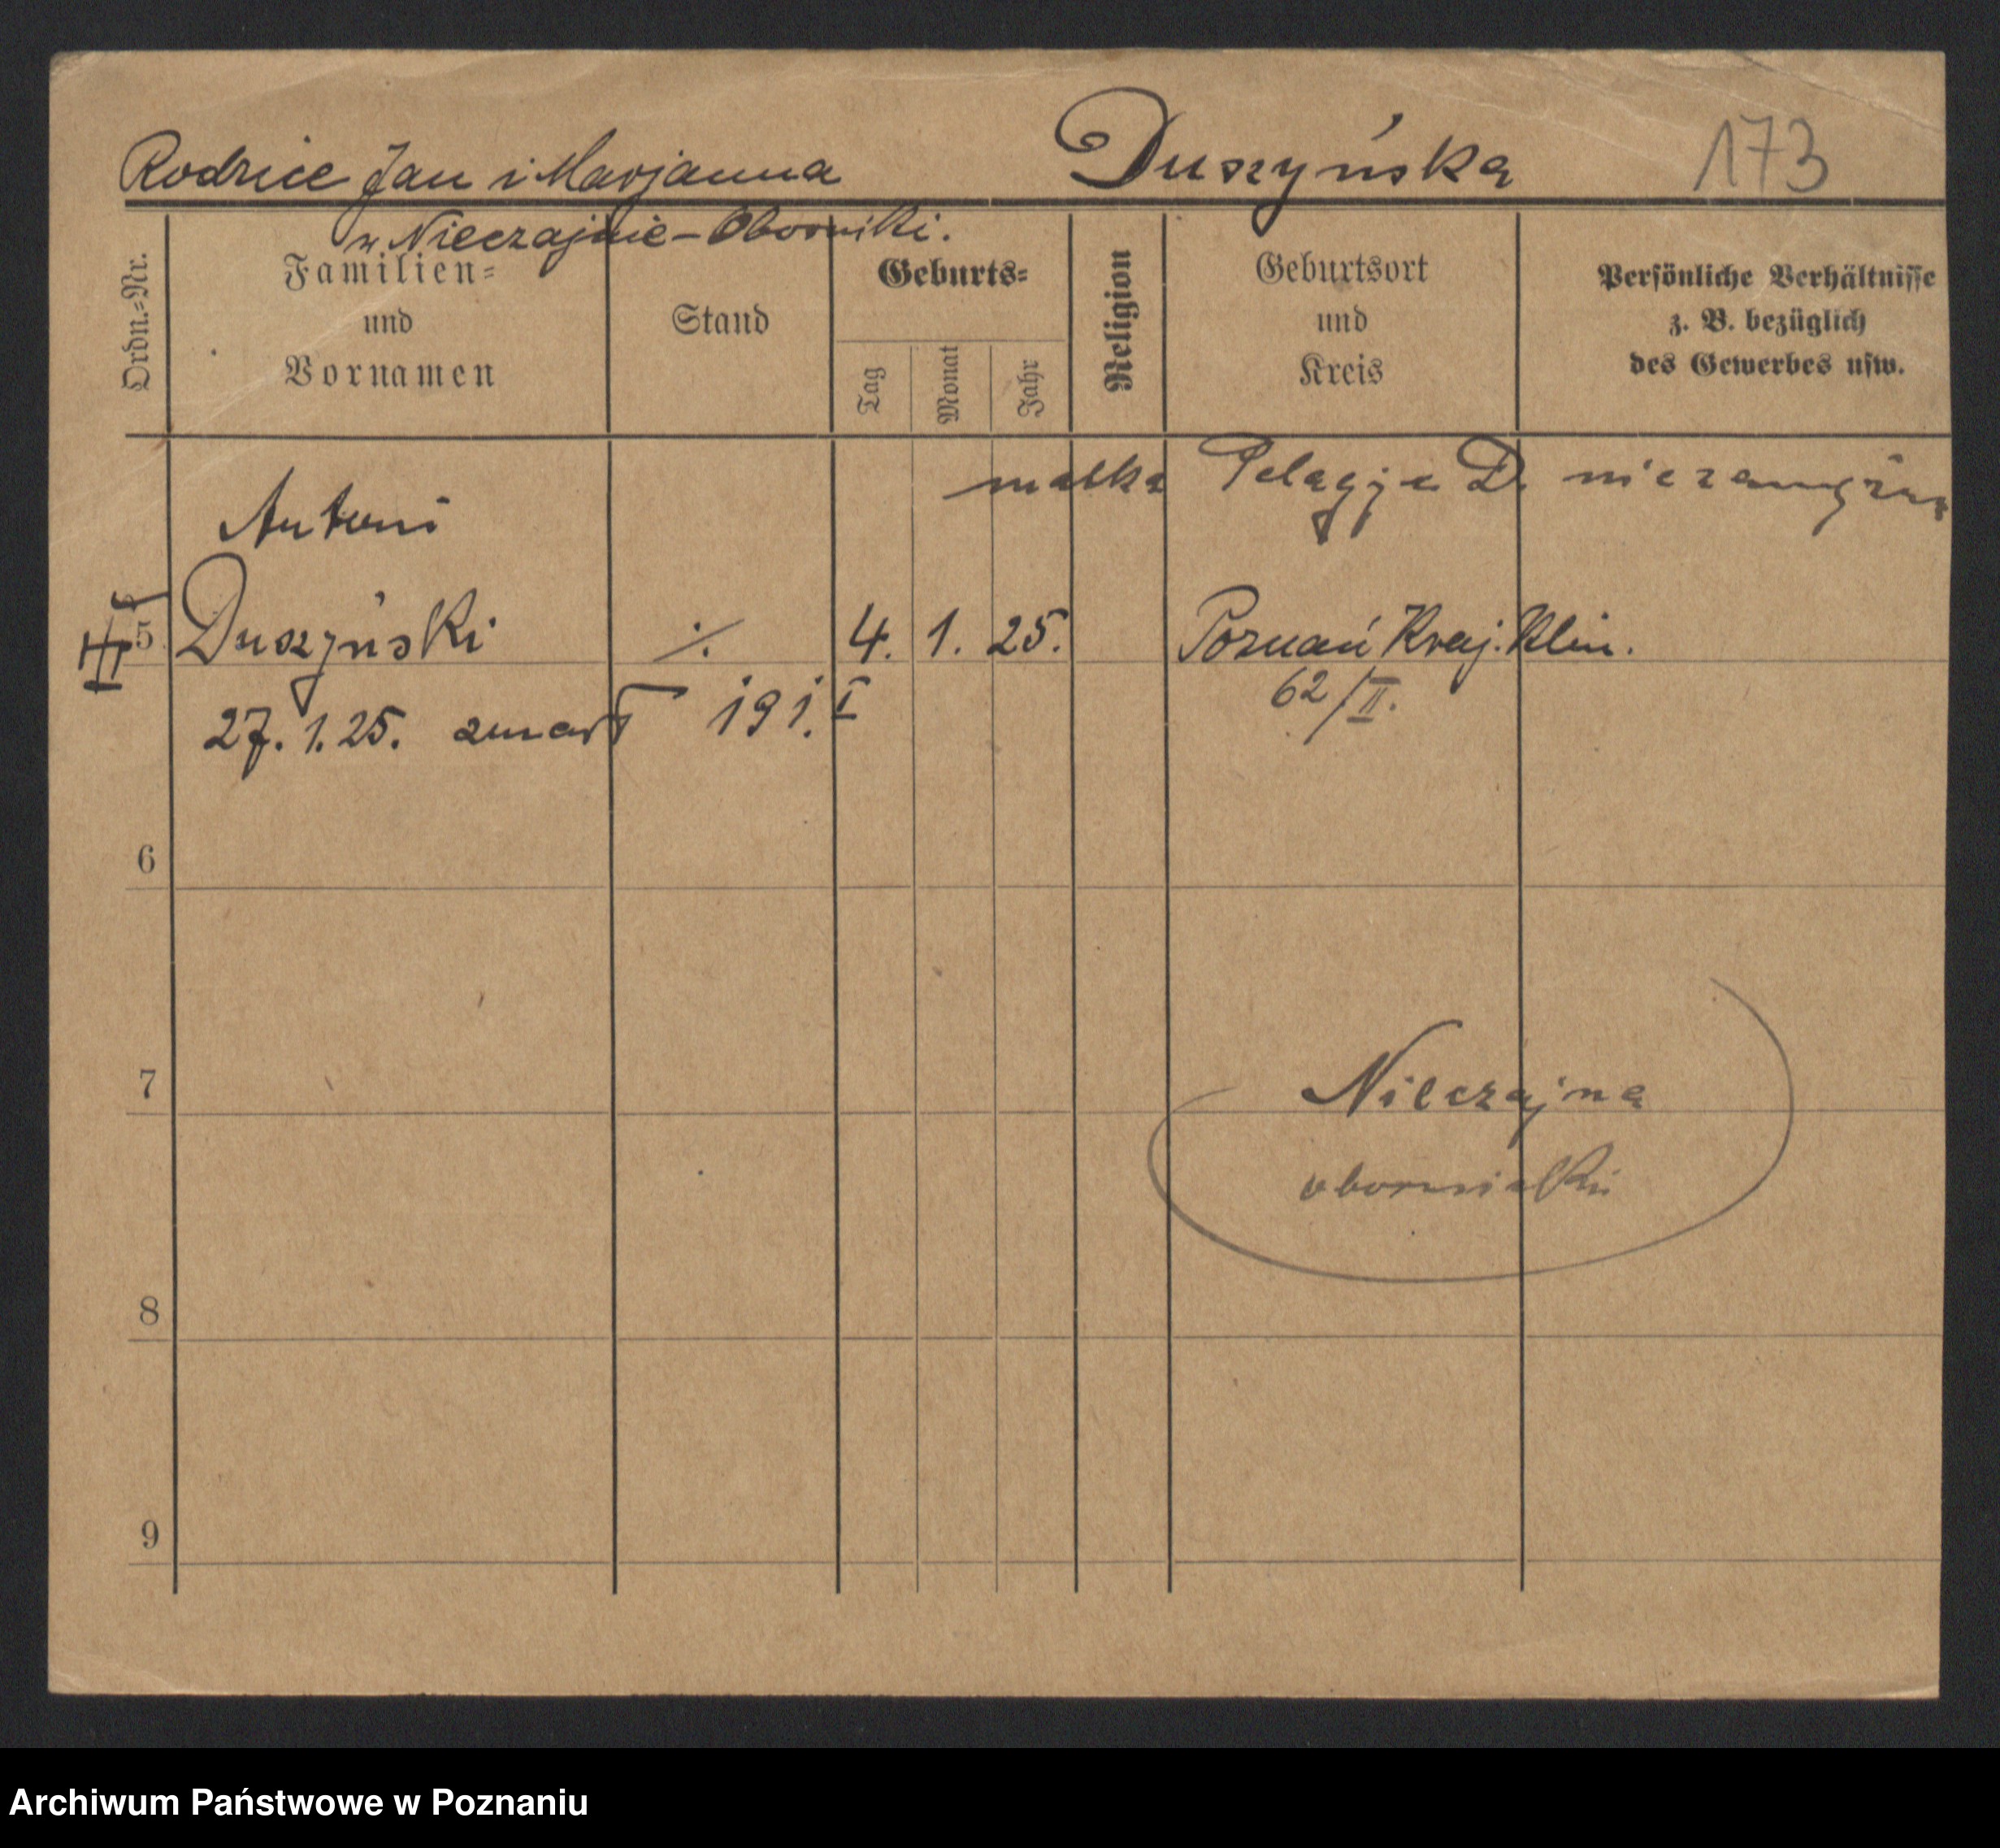 Rodzice Jan i Marjanna Duszyńska 173
w Nieczajnie - Oborniki.
Ordn.=Nr.
Familien=
und
Vornamen
Stand
Geburts=
Tag
Monat
Jahr
Religion
Geburtsort
und
Kreis
Persönliche Verhältnisse
z. B. bezüglich
des Gewerbes usw.
matka Pelagja D. niezamężna
Antoni
5 Duszyński ./. 4. 1. 25. Poznań Kraj. Klin.
62/II.
27. 1. 25. zmarł 19 1. I
6
7
Nieczajna
obornicki
8
9
Archiwum Państwowe w Poznaniu